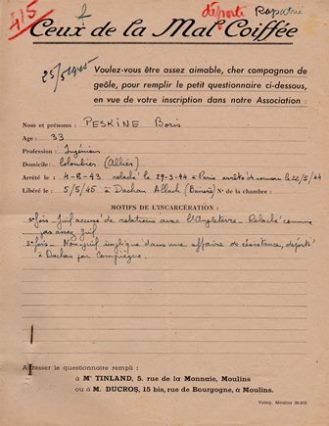 415
déporté Rapatrié
Ceux de la Mal Coiffée
25/5/1945
Voulez-vous être assez aimable, cher compagnon de
geôle, pour remplir le petit questionnaire ci-dessous,
en vue de votre inscription dans notre Association :
Nom et prénoms : PESKINE Boris
Age : 33
Profession : Ingénieur
Domicile : Colombier (Allier)
Arrêté le : 4-8-43 relaché le 29-3-44 à Paris arrêté de nouveau le 22/5/44
Libéré le : 5/5/45 à Dachau Allach (Bavière) N° de la chambre :
MOTIFS DE L'INCARCÉRATION :
fois Juif accusé de relations avec l'Angleterre. Relaché comme
pas assez juif
fois Non juif impliqué dans une affaire de résistance, déporté
à Dachau par Compiègne.
Adresser le questionnaire rempli :
à Mr TINLAND, 5, rue de la Monnaie, Moulins
ou à M. DUCROS, 15 bis, rue de Bourgogne, à Moulins.
Moulins